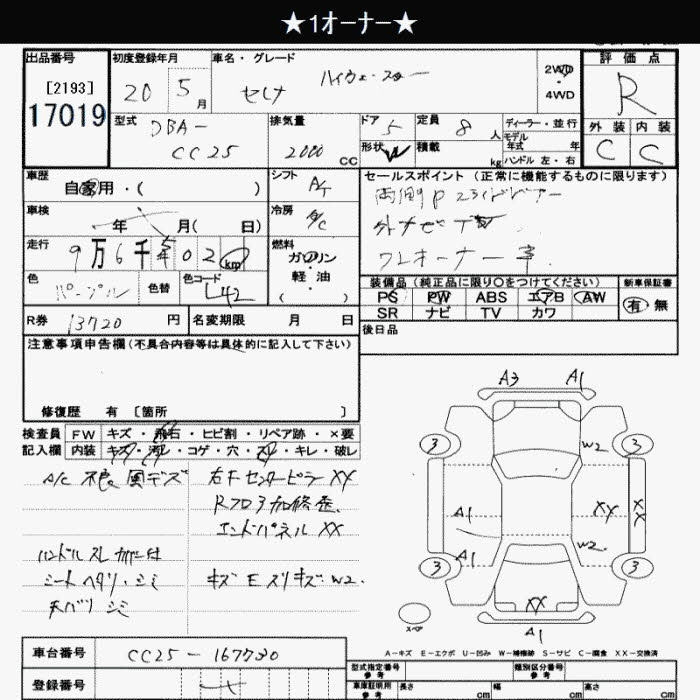 ★1オーナー★
出品番号
[2193]
17019
初度登録年月
20 5月
車名・グレード
セレナ ハイウェースター
2WD
・
4WD
評価点
R
型式
DBA-
CC25
排気量
2000 CC
ドア 5
形状
定員 8 人
積載 kg
ディーラー・並行
モデル
年式 年
ハンドル 左・右
外装 内装
C C
車歴
自家用・( )
シフト
A/T
セールスポイント (正常に機能するものに限ります)
両側Pスライドドアー
外ナビTV
ワンオーナー車
車検
年 月(日)
冷房
A/C
走行
9万6千 02 km
燃料
ガソリン
・
軽油
・
( )
色
パープル
色替
色コード
L42
装備品 (純正品に限り○をつけてください)
PS PW ABS エアB AW
SR ナビ TV カワ
新車保証書
有 無
R券 13720 円
名変期限 月 日
後日品
注意事項申告欄 (不具合内容等は具体的に記入して下さい)
修復歴 有 [箇所 ]
検査員 FW キズ・飛石・ヒビ割・リペア跡・×要
記入欄 内装 キズ・汚レ・コゲ・穴・スレ・キレ・破レ
A/C 不良 風デズ
右F センターピラー XX
Rフロア 加修歴
エンドパネル XX
ハンドル スレ カバー付
シート ヘタリ・シミ
天バリ シミ
キズ E スリキズ W2.
A3 A1
3 3
W2
A1 XX XX
A1 W2
3 3
XX
スペア
A1
A-キズ E-エクボ U-凹み W-補修跡 S-サビ C-腐食 XX-交換済
車台番号 CC25-167730
登録番号
型式指定番号
参考
類別区分番号
参考
車庫証明用
参考
長さ cm 幅 cm 高さ cm